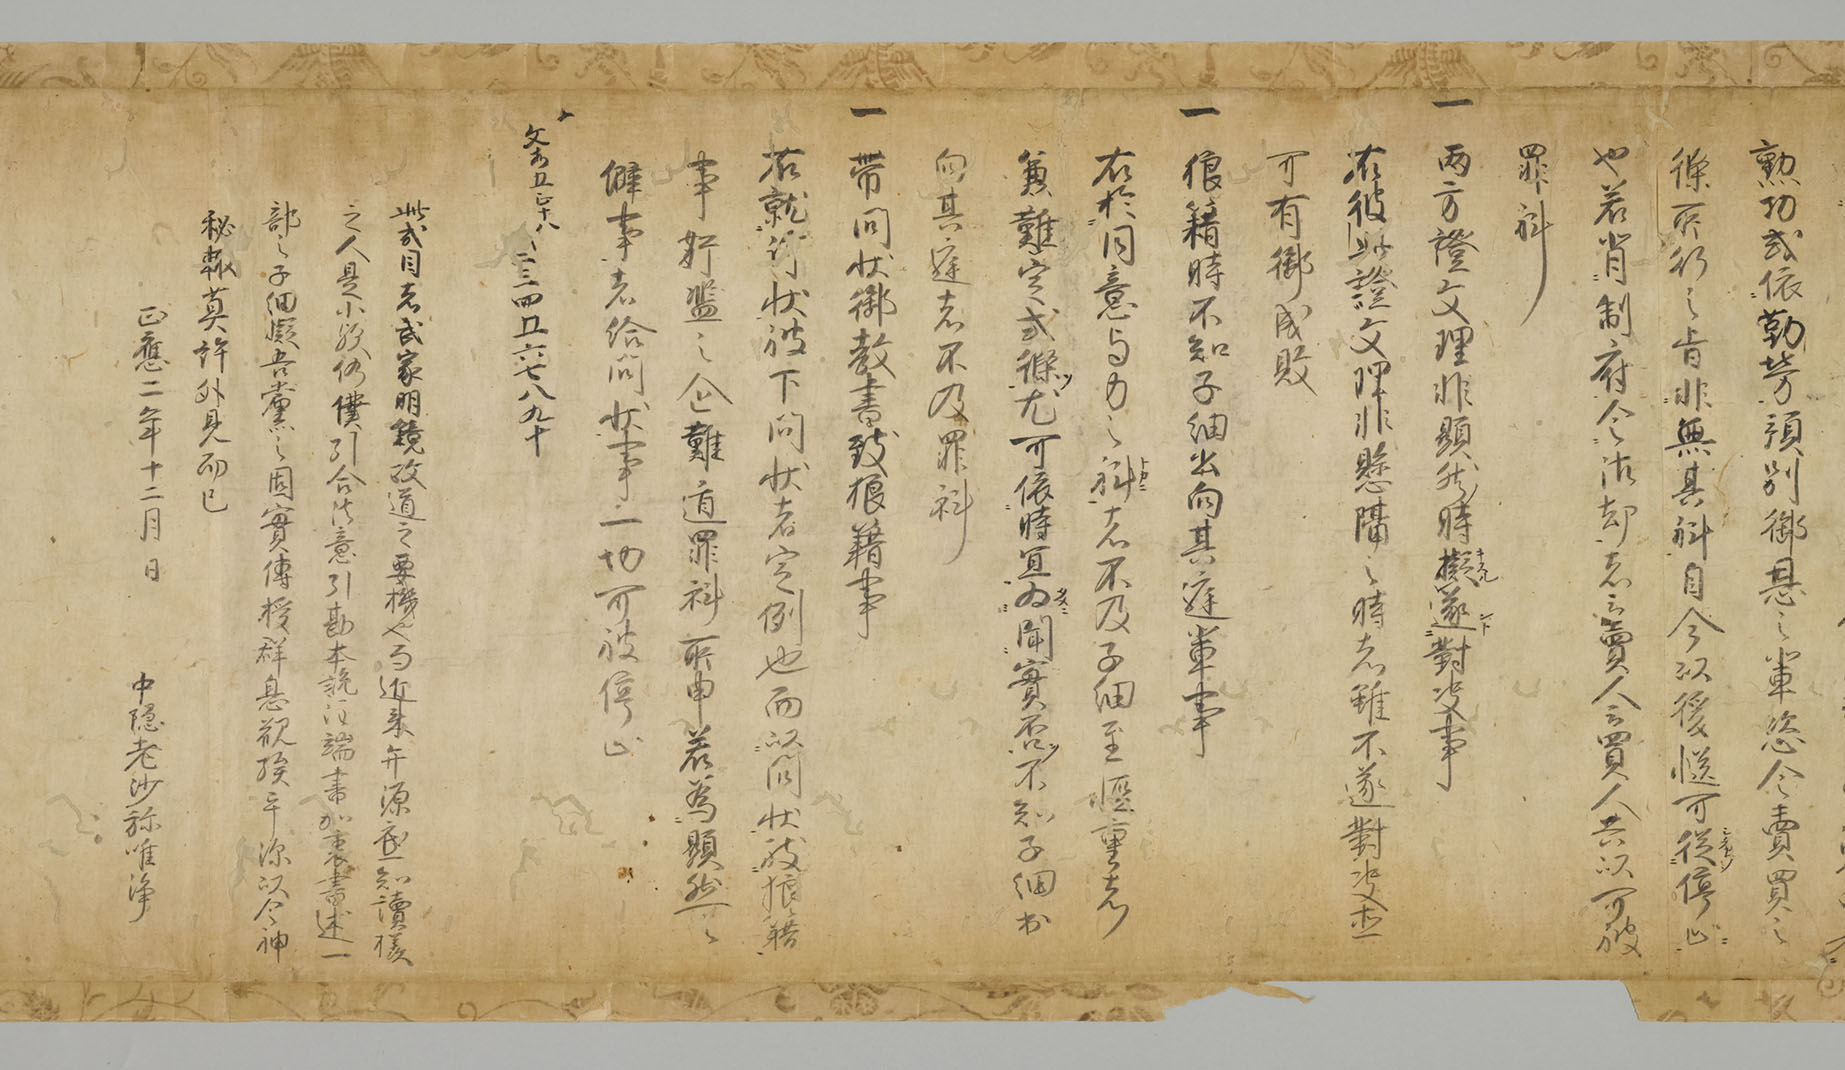 勲功或依勤労預別御恩之輩恣令売買之
條所行之旨非無其科自今以後慥可従停止
也若背制府令沽却者云売人云買人共以可被
罪科
一 両方證文理非顕然時擬遂對决事
右彼此證文理非懸隔之時者雖不遂對决直
可有御成敗
一 狼籍時不知子細出向其庭輩事
右於同意与力之科者不及子細至軽重者
兼難定式條尤可依時宜為聞實否不知子細出
向其庭者不及罪科
一 帯問状御教書致狼籍事
右就訴状被下問状者定例也而以問状致狼籍
事姧濫之企難遁罪科所申若為顕然之
僻事者給問状事一切可被停止
一二三四五六七八九十
此式目者武家明鏡政道之要機也而近来弁源底知讀様
之人是小
部之子細擬吾黨之固實傳授群息
秘蔵莫許外見而已
正應二年十二月 日
中隠老沙弥唯浄